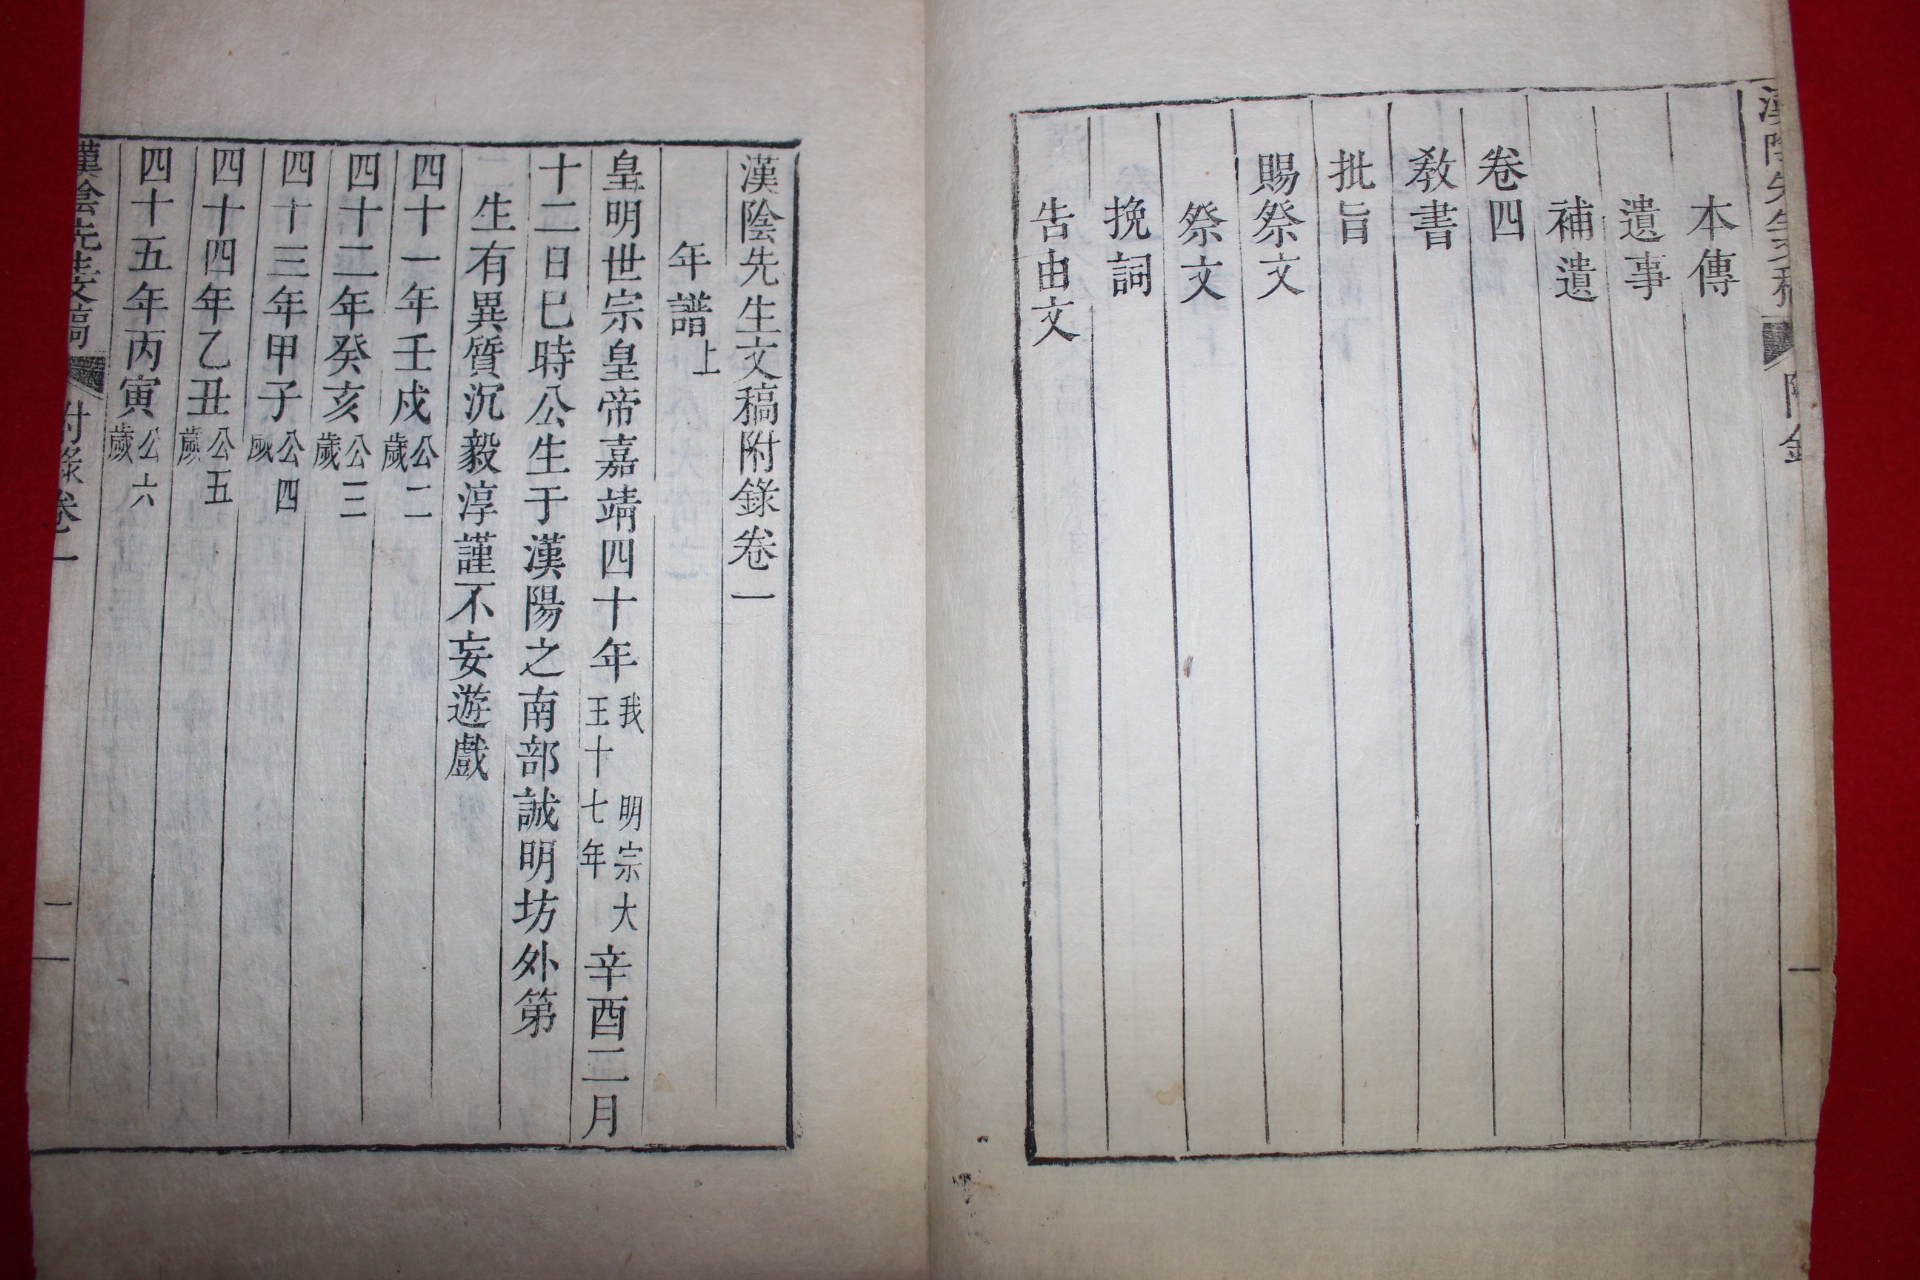 本傳
遺事
補遺
卷四
敎書
批旨
賜祭文
祭文
挽詞
告由文
漢陰先生文稿附錄卷一
年譜上
皇明世宗皇帝嘉靖四十年我 明宗大王十七年辛酉二月
十二日巳時公生于漢陽之南部誠明坊外第
生有異質沉毅淳謹不妄遊戲
四十一年壬戌公二歲
四十二年癸亥公三歲
四十三年甲子公四歲
四十四年乙丑公五歲
四十五年丙寅公六歲
漢陰先生文稿 附錄卷一 一